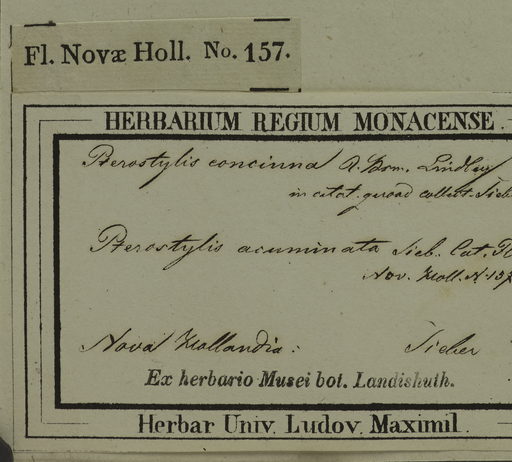 Fl. Novæ Holl. No. 157.
HERBARIUM REGIUM MONACENSE.
Pterostylis concinna R. Brn. Lindley
in citat. quoad collect. Sieb
Pterostylis acuminata Sieb. Cat. Pl
Nov. Holl. N. 157
Nova Hollandia: Sieber
Ex herbario Musei bot. Landishuth.
Herbar Univ. Ludov. Maximil.